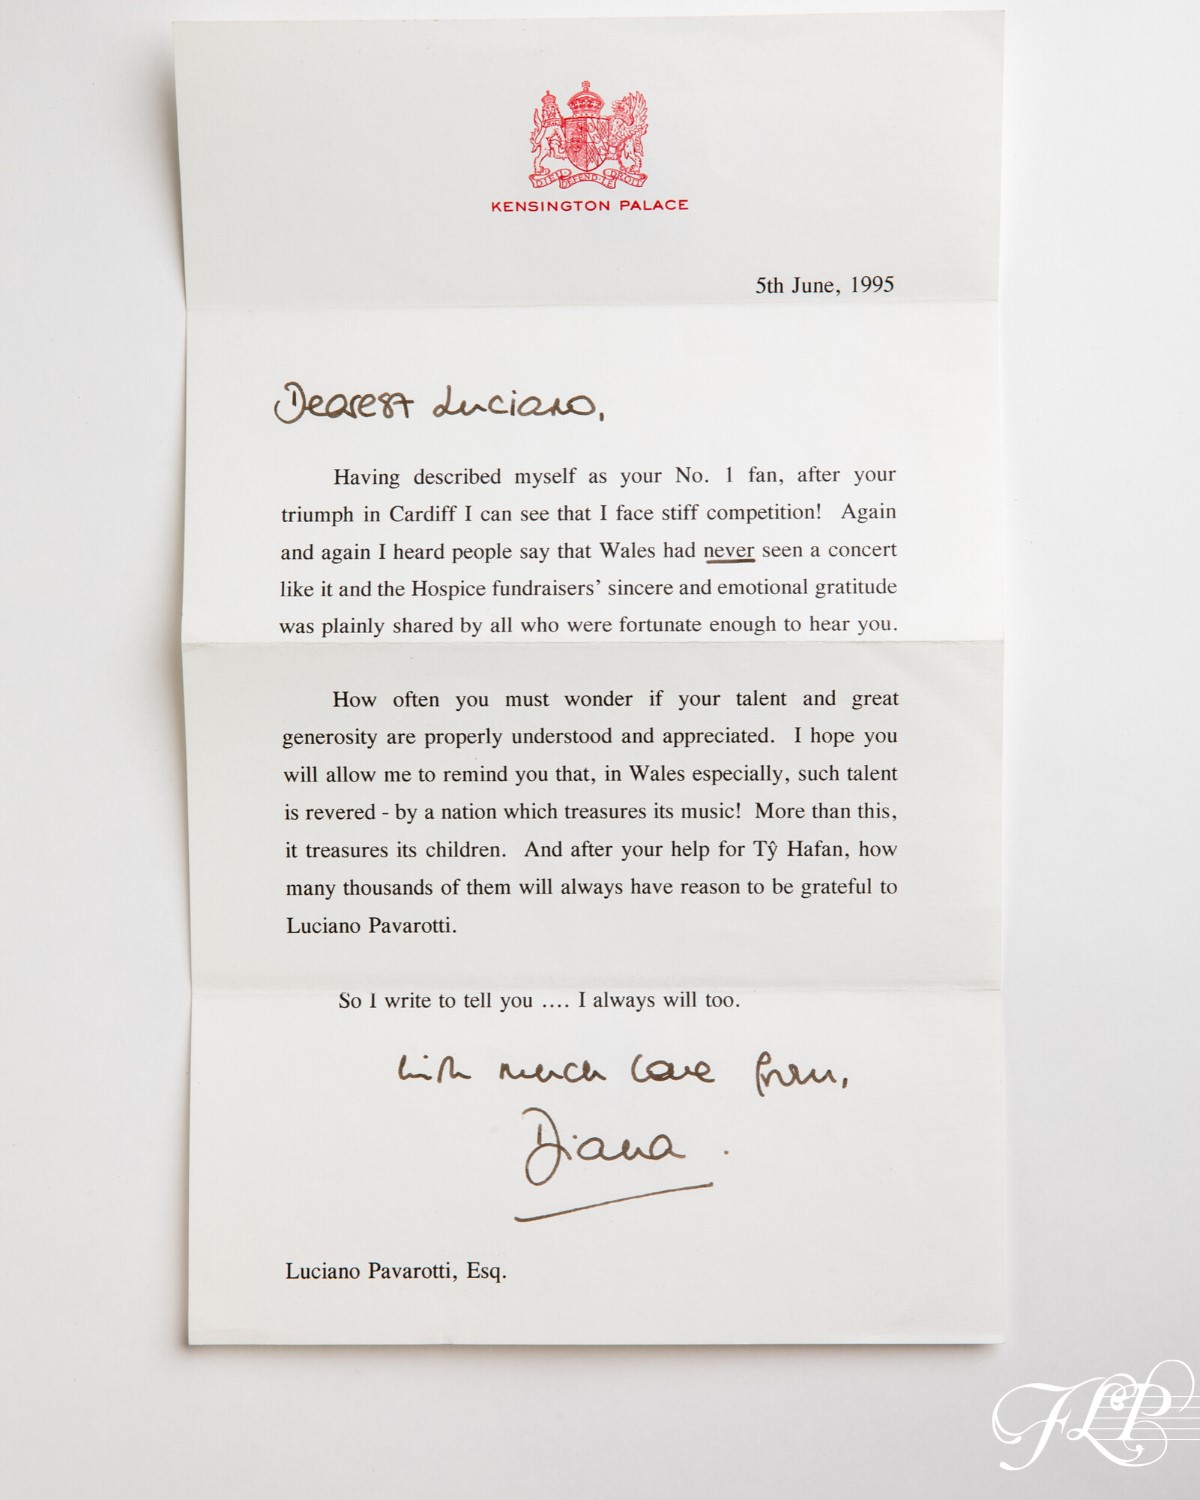 DIEU DEFEND LE DROIT
KENSINGTON PALACE
5th June, 1995
Dearest Luciano,
Having described myself as your No. 1 fan, after your
triumph in Cardiff I can see that I face stiff competition! Again
and again I heard people say that Wales had never seen a concert
like it and the Hospice fundraisers’ sincere and emotional gratitude
was plainly shared by all who were fortunate enough to hear you.
How often you must wonder if your talent and great
generosity are properly understood and appreciated. I hope you
will allow me to remind you that, in Wales especially, such talent
is revered - by a nation which treasures its music! More than this,
it treasures its children. And after your help for Tŷ Hafan, how
many thousands of them will always have reason to be grateful to
Luciano Pavarotti.
So I write to tell you .... I always will too.
with much love from,
Diana.
Luciano Pavarotti, Esq.
FLP